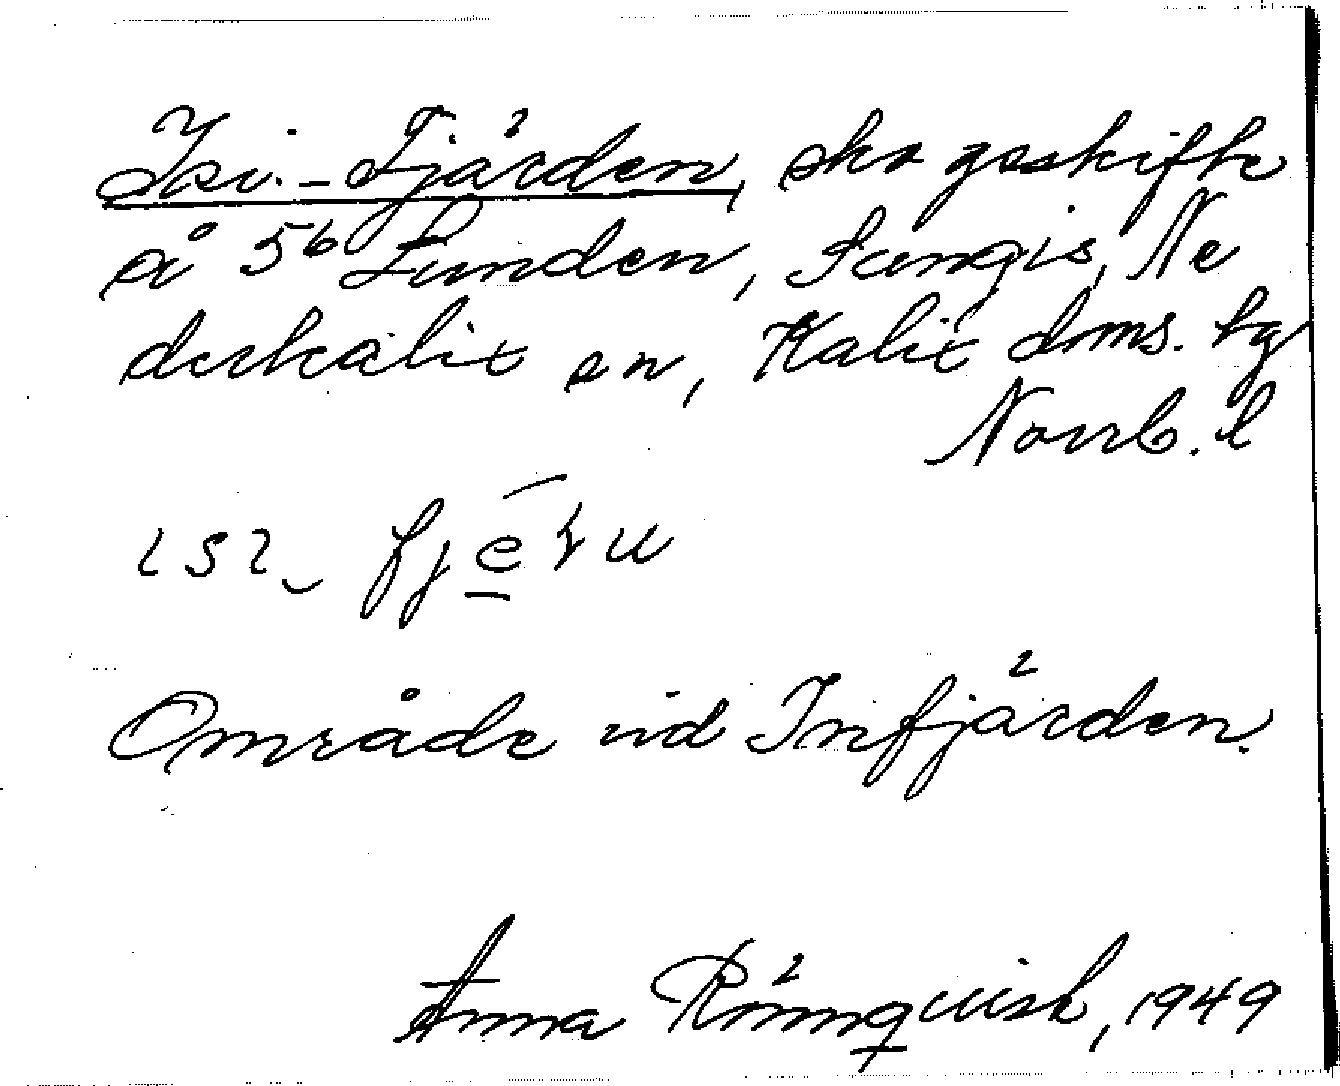 Isi-Fjärden, skogsskifte
å 5⁶ Lunden, Sangis, Ne
derkalix sn, Kalix doms. hg
Norrb. l
ɩsɩ‿ fjērn
Område vid Infjärden.
Anna Rönnquist, 1949